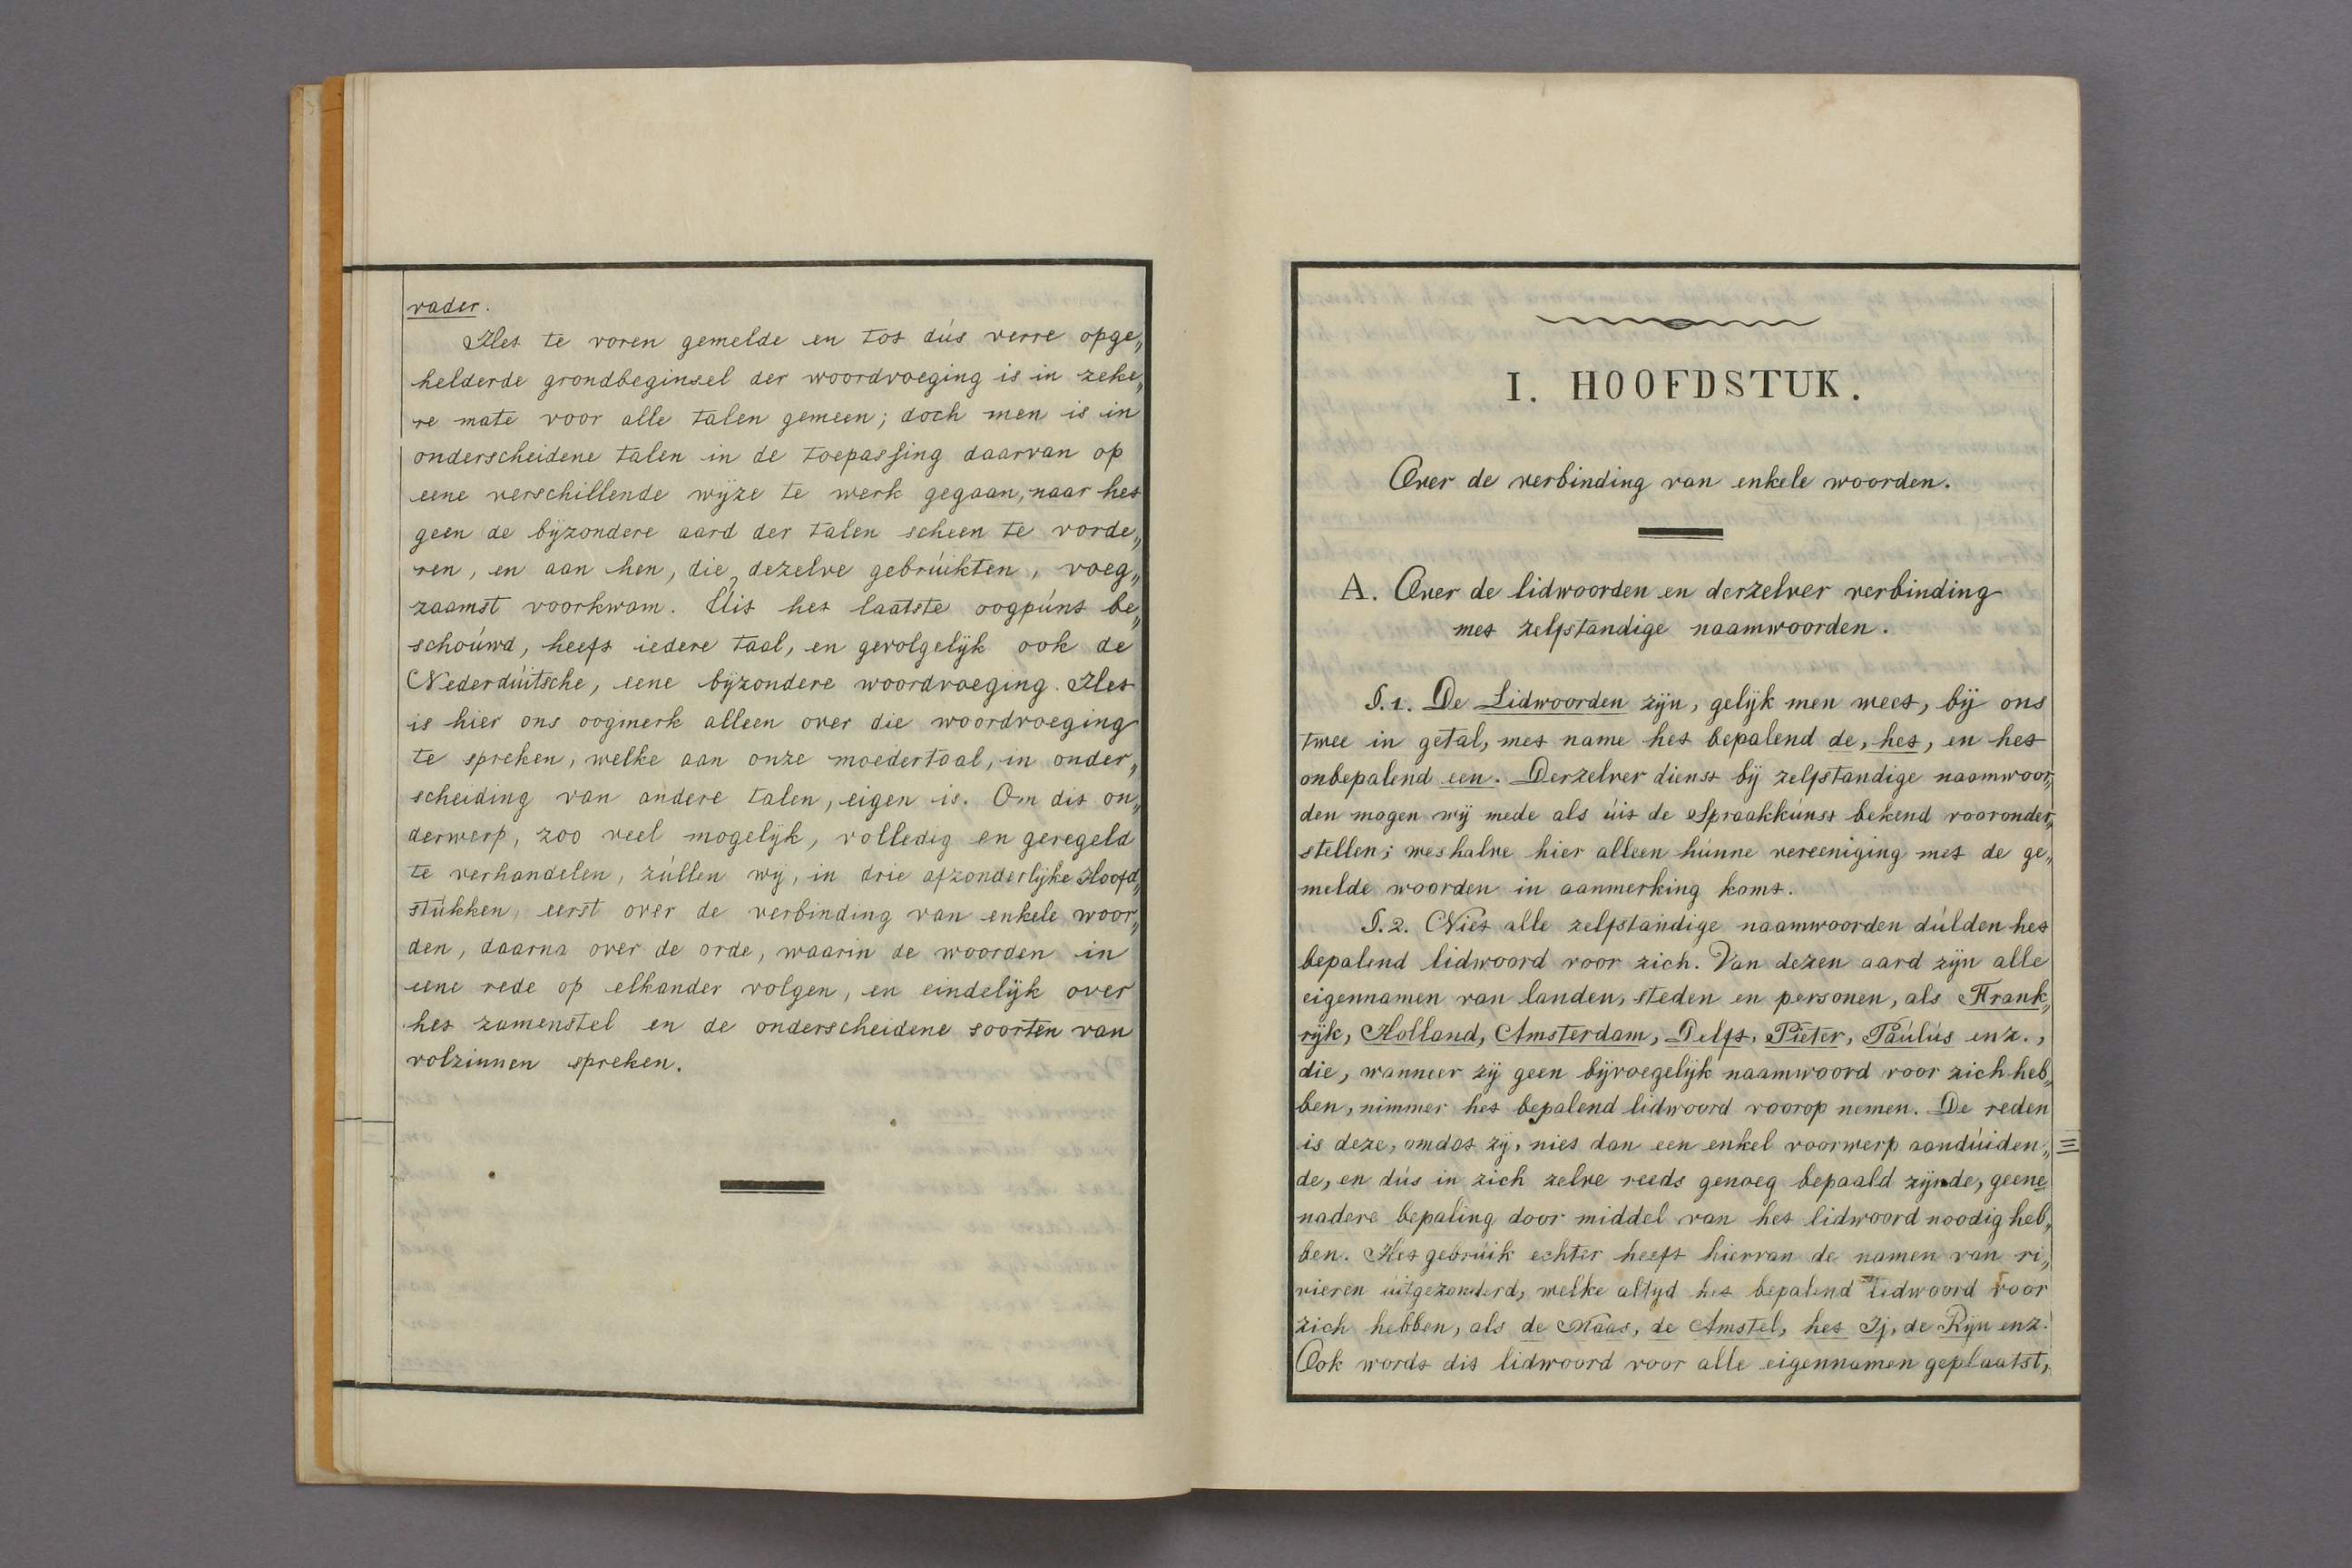 vader.
Het te voren gemelde en tot dús verre opge„
helderde grondbeginsel der woordvoeging is in zeke„
re mate voor alle talen gemeen; doch men is in
onderscheidene talen in de toepassing daarvan op
eene verschillende wijze te werk gegaan, naar het
geen de bijzondere aard der talen scheen te vorde„
ren, en aan hen, die, dezelve gebrúikten, voeg„
zaamst voorkwam. Úit het laatste oogpúnt be„
schoúwd, heeft iedere taal, en gevolgelijk ook de
Nederdúitsche, eene bijzondere woordvoeging. Het
is hier ons oogmerk alleen over die woordvoeging
te spreken, welke aan onze moedertaal, in onder„
scheiding van andere talen, eigen is. Om dit on„
derwerp, zoo veel mogelijk, volledig en geregeld
te verhandelen, zúllen wij, in drie afzonderlijke Hoofd„
stúkken, eerst over de verbinding van enkele woor„
den, daarna over de orde, waarin de woorden in
eene rede op elkander volgen, en eindelijk over
het zamenstel en de onderscheidene soorten van
volzinnen spreken.
I. HOOFDSTUK.
Over de verbinding van enkele woorden.
A. Over de lidwoorden en derzelver verbinding
met zelfstandige naamwoorden.
§.1. De Lidwoorden zijn, gelijk men weet, bij ons
twee in getal, met name het bepalend de, het, en het
onbepalend een. Derzelver dienst bij zelfstandige naamwoor„
den mogen wij mede als úit de Spraakkúnst bekend vooronder„
stellen; weshalve hier alleen húnne vereeniging met de ge„
melde woorden in aanmerking komt.
§.2. Niet alle zelfstandige naamwoorden dúlden het
bepalend lidwoord voor zich. Van dezen aard zijn alle
eigennamen van landen, steden en personen, als Frank„
rijk, Holland, Amsterdam, Delft, Pieter, Paúlús enz.,
die, wanneer zij geen bijvoegelijk naamwoord voor zich heb„
ben, nimmer het bepalend lidwoord voorop nemen. De reden
is deze, omdat zij, niet dan een enkel voorwerp aandúiden„
de, en dús in zich zelve reeds genoeg bepaald zijnde, geene
nadere bepaling door middel van het lidwoord noodig heb„
ben. Het gebrúik echter heeft hiervan de namen van ri„
vieren úitgezonderd, welke altijd het bepalend lidwoord voor
zich hebben, als de Maas, de Amstel, het Ij, de Rijn enz.
Ook wordt dit lidwoord voor alle eigennamen geplaatst,